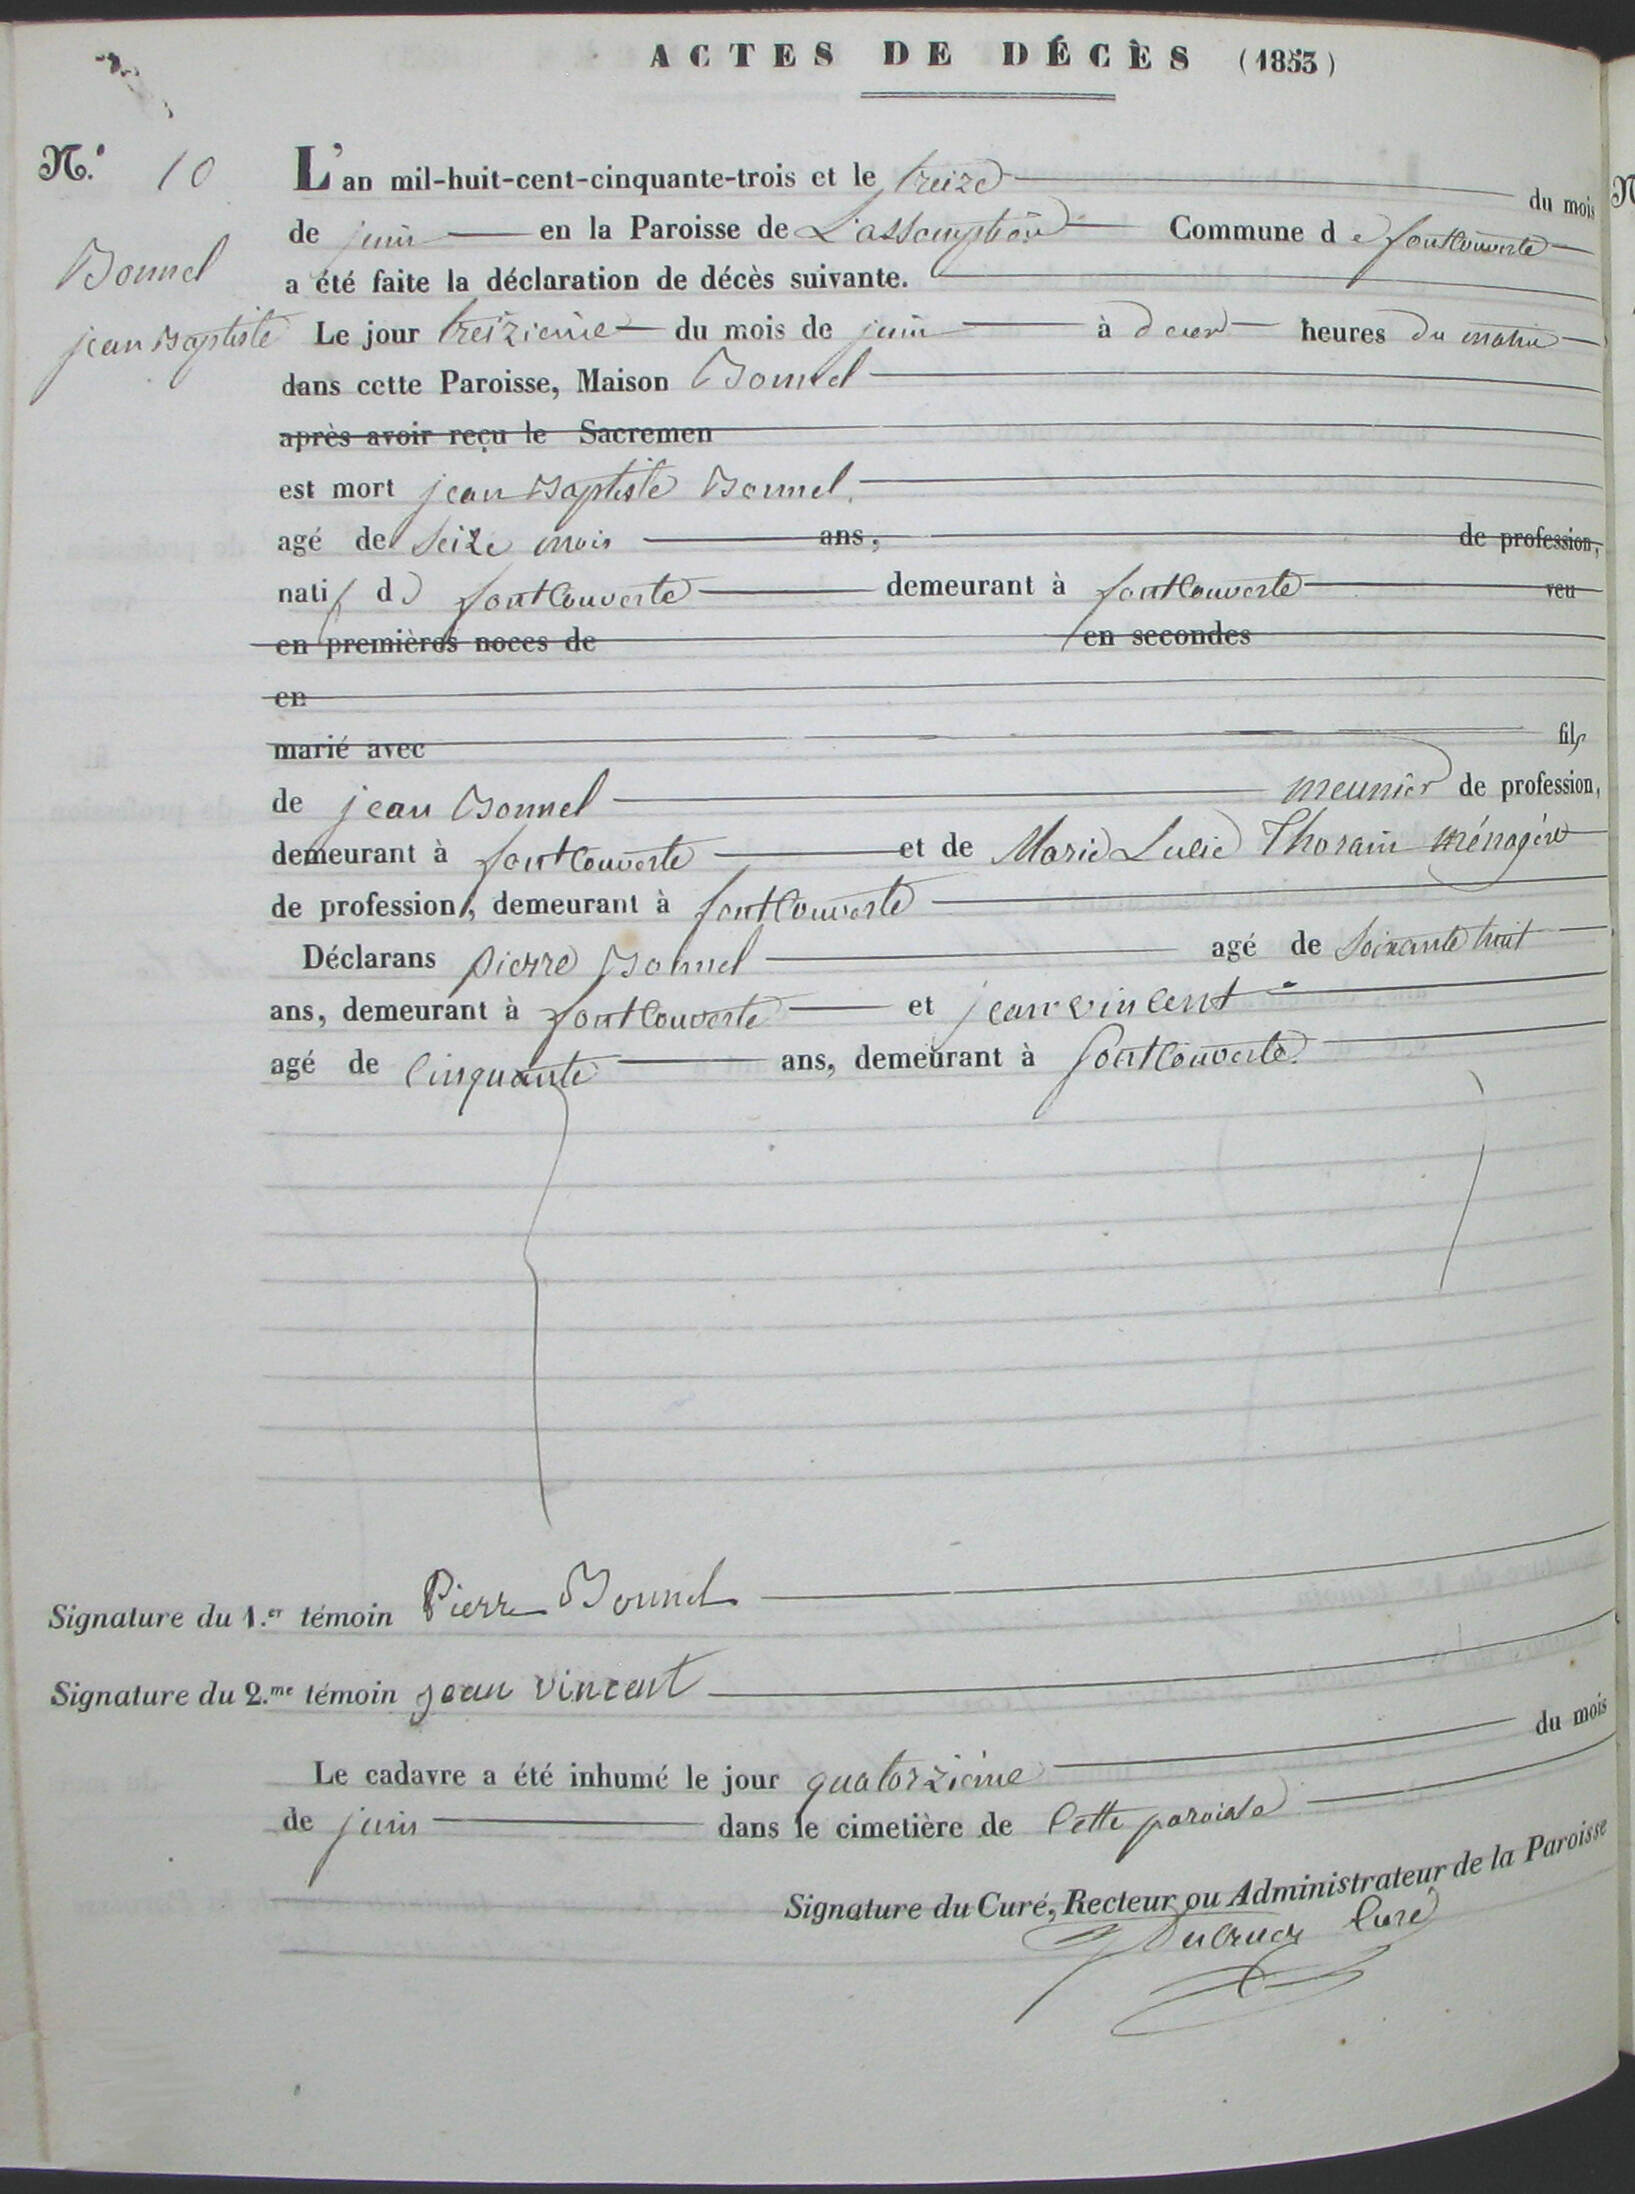 ACTES DE DÉCÈS (1853)
N.º 10
L'an mil-huit-cent-cinquante-trois et le treize du mois
de juin en la Paroisse de L'assomption Commune de fontcouverte
Bonnel
a été faite la déclaration de décès suivante.
jean Baptiste
Le jour treizieme du mois de juin à deux heures du matin
dans cette Paroisse, Maison Bonnel
après avoir reçu le Sacremen
est mort jean Baptiste Bonnel.
agé de seize mois ans, de profession,
natif de fontcouverte demeurant à fontcouverte veu
en premières noces de en secondes
en
marié avec fils
de jean Bonnel meunier de profession,
demeurant à fontcouverte et de Marie Lucie Thorain ménagère
de profession, demeurant à fontcouverte
Déclarans pierre Bonnel agé de soixante huit
ans, demeurant à fontcouverte et jean vincent
agé de cinquante ans, demeurant à fontcouverte.
Signature du 1.er témoin Pierre Bonnel
Signature du 2.me témoin jean vincent
Le cadavre a été inhumé le jour quatorzième du mois
de juin dans le cimetière de cette paroisse
Signature du Curé, Recteur ou Administrateur de la Paroisse
Curé